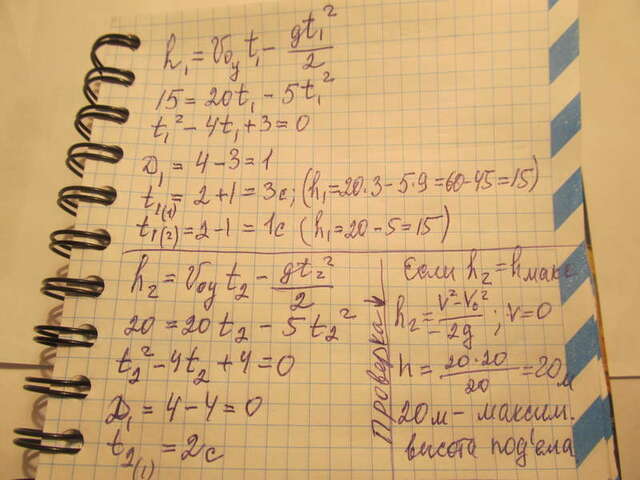 h₁ = V₀y t₁ - gt₁²/2
15 = 20t₁ - 5t₁²
t₁² - 4t₁ + 3 = 0
D₁ = 4 - 3 = 1
t₁₍₁₎ = 2 + 1 = 3с; (h₁ = 20·3 - 5·9 = 60 - 45 = 15)
t₁₍₂₎ = 2 - 1 = 1с (h₁ = 20 - 5 = 15)
h₂ = V₀y t₂ - gt₂²/2
20 = 20t₂ - 5t₂²
t₂² - 4t₂ + 4 = 0
D₁ = 4 - 4 = 0
t₂₍₁₎ = 2с
Проверка
Если h₂ = hмакс
h₂ = V² - V₀²/-2g; V = 0
h = 20·20/20 = 20м
20м - максим.
высота под'ема